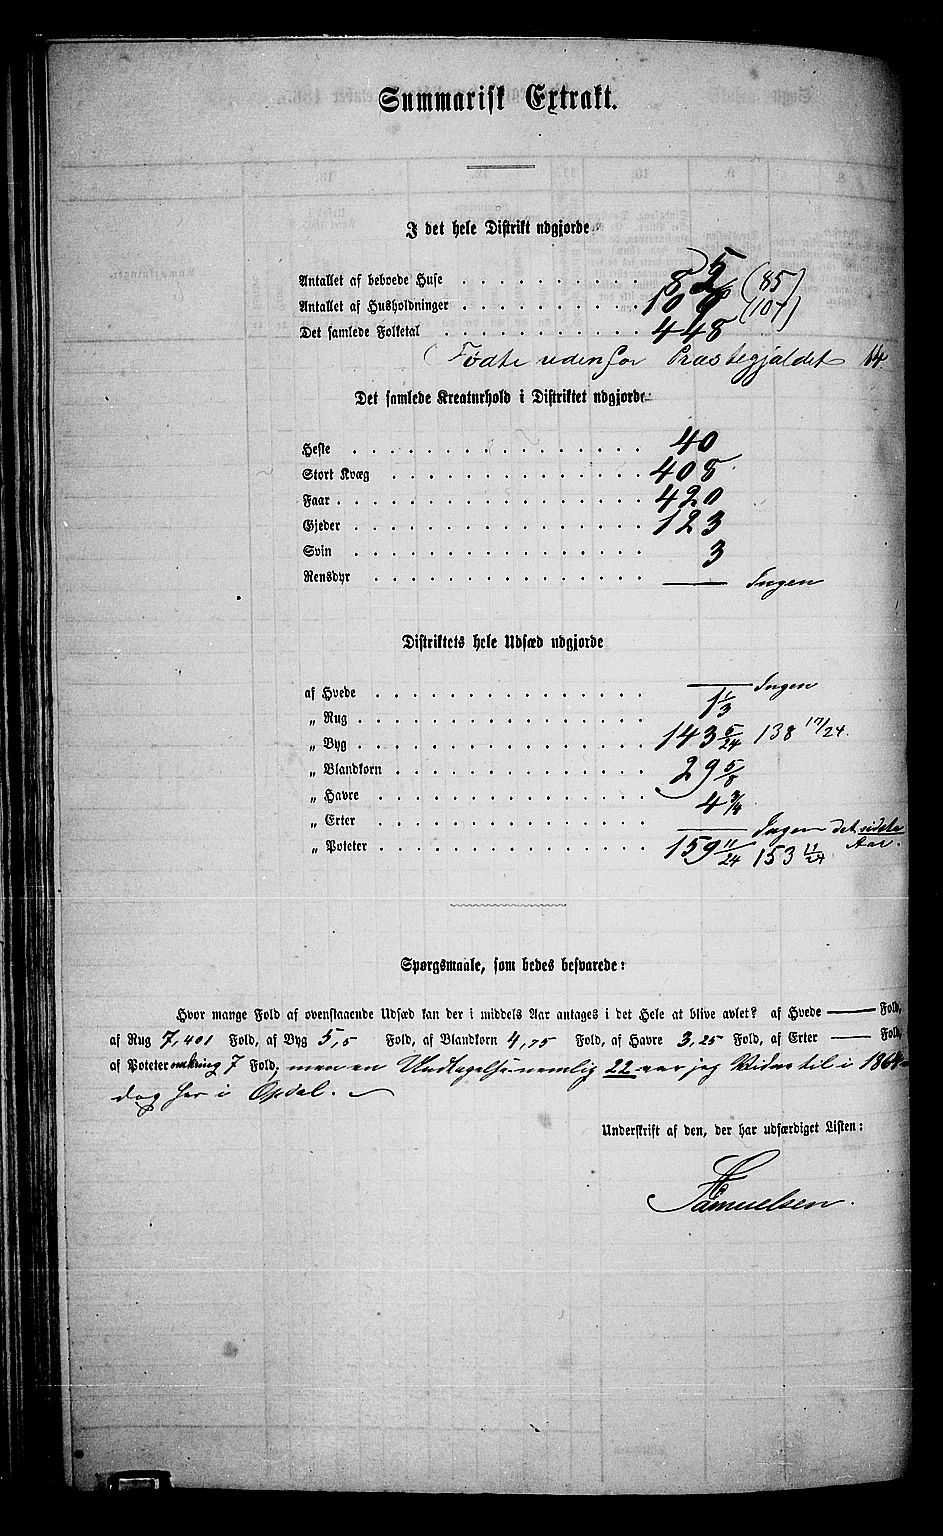 Summarisk Extrakt.
I det hele Distrikt udgjorde:
Antallet af beboede Huse . . . . . . . . . . 85 (85)
Antallet af Husholdninger . . . . . . . . . . 109 (107)
Det samlede Folketal . . . . . . . . . . . 448
(Fødte udenfor Præstegjældet 14.
Det samlede Kreaturhold i Distriktet udgjorde:
Heste . . . . . . . . . . . . . . . . 40
Stort Kvæg . . . . . . . . . . . . . . 408
Faar . . . . . . . . . . . . . . . . . 420
Gjeder . . . . . . . . . . . . . . . . 123
Svin . . . . . . . . . . . . . . . . . 3
Rensdyr . . . . . . . . . . . . . . . — Ingen
Distriktets hele Udsæd udgjorde
af Hvede . . . . . . . . . . . . . . — Ingen
„ Rug . . . . . . . . . . . . . . . 1 1/3
„ Byg . . . . . . . . . . . . . . . 143 5/24 138 17/24.
„ Blandkorn . . . . . . . . . . . . . 29 5/8
„ Havre . . . . . . . . . . . . . . 4 3/4
„ Erter . . . . . . . . . . . . . . — Ingen det sidste Aar.
„ Poteter . . . . . . . . . . . . . . 159 11/24 153 11/24
Spørgsmaale, som bedes besvarede:
Hvor mange Fold af ovenstaaende Udsæd kan der i middels Aar antages i det Hele at blive avlet? af Hvede — Fold,
af Rug 7,401 Fold, af Byg 5,5 Fold, af Blandkorn 4,75 Fold, af Havre 3,25 Fold, af Erter — Fold,
af Poteter omkring 7 Fold, men en Undtagelse nemlig 22 var jeg Vidne til i 1864
dog her i Opdal.
Underskrift af den, der har udfærdiget Listen:
Samuelsen.